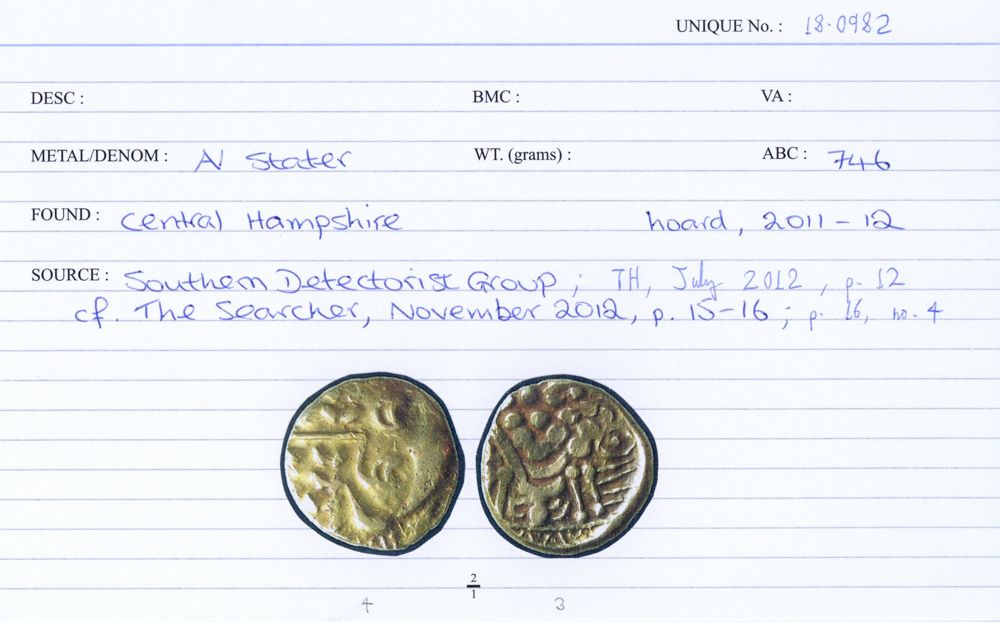 UNIQUE No. : 18·0982
DESC : BMC : VA :
METAL/DENOM : AV Stater WT. (grams) : ABC : 746
FOUND : Central Hampshire hoard, 2011 - 12
SOURCE : Southern Detectorist Group ; TH, July 2012, p. 12
cf. The Searcher, November 2012, p. 15-16 ; p. 16, no. 4
2
1
4 3